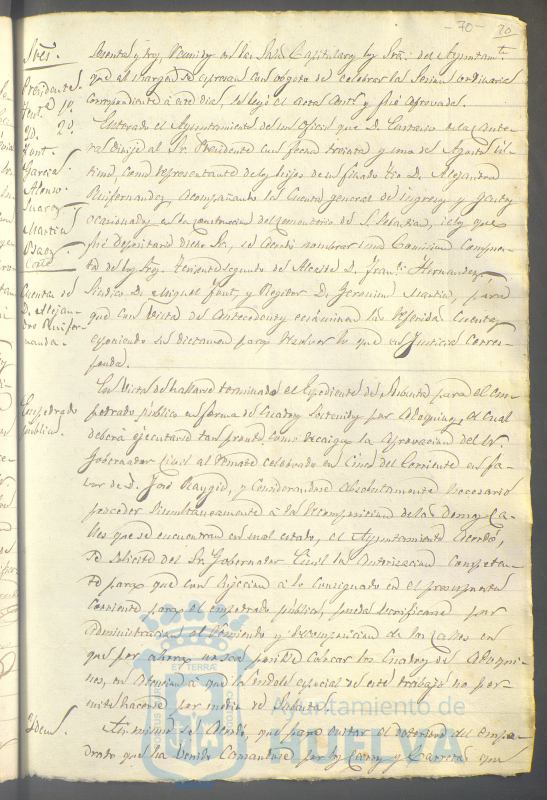 - 70 - 70
Sres.
Presidente.
Tent.e 1º.
Yd. 2º.
Font.
Garcia
Alonso.
Suarez
Martin
Baez
Cuenta de
D. Alejan-
dro Quifer-
nanda.
setenta y tres, reunidos en las Salas Capitulares los Sres. del Ayuntam.to
que al margen se espresan con objeto de celebrar la Sesion ordinaria
correspondiente á este dia, se leyó el acta ant.r y fué aprovada.
Enterado el Ayuntamiento de un oficio que D. Cayetano de la
dirije al Sr. Presidente con fecha treinta y uno de Agosto úl-
timo, como representante de los hijos de su finado tio D. Alejandro
Quifernandez, acompañando la cuenta general de ingresos y gastos
ocasionados en la construccion del Cementerio de S. Sebastian, de los que
fué depositario dicho Sr., se acordó nombrar una Comision compues-
ta de los Sres. Teniente segundo de Alcalde D. Fran.co Hernandez,
Sindico D. Miguel Font, y Regidor D. Geronimo Martin, para
que con vista de antecedentes ecsaminen la referida cuenta,
esponiendo su dictamen para resolver lo que en Justicia corres-
ponda.
Empedrado
público.
En vista de hallarse terminado el Espediente de subasta para el em-
pedrado público en forma de cuadros sostenidos por adoquines, el cual
deberá ejecutarse tan pronto como recaiga la aprovacion del Sr.
Gobernador Civil al remate celebrado en cinco del corriente en fa-
vor de D. José Raygio, y considerandose absolutamente necesario
proceder simultaneamente á la recomposicion de las demas ca-
lles que se encuentran en mal estado, el Ayuntamiento acordó,
se solicite del Sr. Gobernador Civil la autorizacion competen-
te para que con sujecion á lo consignado en el presupuesto
corriente para el empedrado público, pueda verificarse por
administracion el remiendo y recomposicion de las calles en
que por ahora no sea posible colocar los cuadros de adoqui-
nes, en atencion á que la indole especial de este trabajo no per-
mite hacerse por medio de subasta.
Ydem.
Asi mismo se acordó, que para evitar el deterioro del empe-
drado que ha venido causandose por los carros y carretas que
Ayuntamiento de
HUELVA